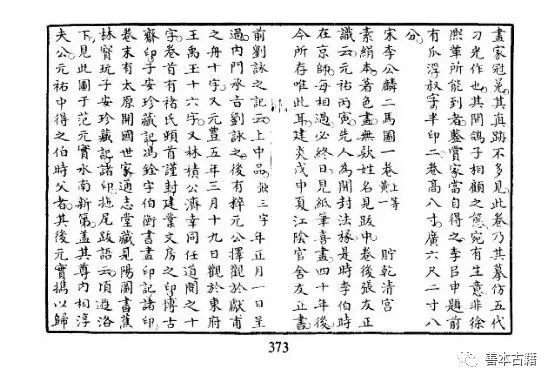 畫家冠冕其真跡不多見此卷乃其摹仿五代
刁光作也其閒鴿子相顧之態宛有生意非徐
熙輩所能到者鑒賞家當自得之李呂申題前
有瓜浮叔字半印二卷高八寸廣六尺二寸八
分
宋李公麟二馬圖一卷 上等 貯乾清宮
素絹本著色畫無款姓名見跋中卷後張友正
識云元祐丙寅先人為開封法掾是時李伯時
在京師每相過必終日見紙筆喜畫四十年後
今所存唯此耳建炎戊申夏江陰官舍友正書
前劉詠之記云上中品 缺三字 年正月一日呈
過內門承旨劉詠之後有粹元公擇觀於獻甫
之舟十字又元豐五年三月十九日觀於東府
王禹玉十六字又林積公濟幸同伍道開之十
字卷首有褚氏頤首謹封建業文房之印博古
齋印子安珍藏記馮銓字伯衡書畫印記諸印
卷末有太原開國世家通志堂藏見陽圖書蕉
林寶玩子安珍藏記諸印拖尾跋語云頃遊洛
下見此圖于范元實水南新第蓋其尊內相淳
夫公元祐中得之伯時父者其後元實攜以歸
373
善本古籍